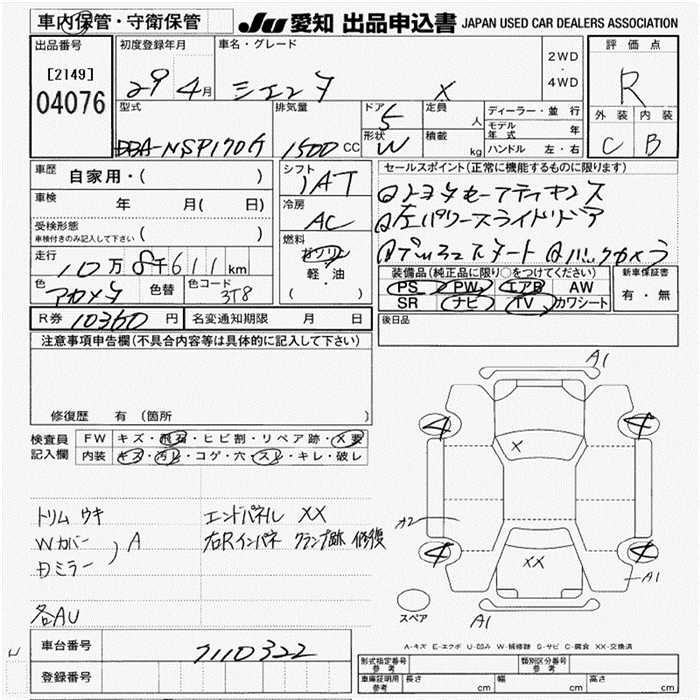 車内保管・守衛保管 JU 愛知 出品申込書 JAPAN USED CAR DEALERS ASSOCIATION
出品番号 [2149] 04076
初度登録年月 29年 4月
車名・グレード シエンタ X
2WD・4WD
評価点 R
外装 C 内装 B
型式 DBA-NSP170G
排気量 1500 CC
ドア 5
形状 W
定員 人
積載 kg
ディーラー・並行
モデル年式 年
ハンドル 左・右
車歴 自家用・( )
車検 年 月( 日)
受検形態
車検付きのみ記入して下さい ( )
走行 10万8千611km
色 アカメタ 色替 色コード 3T8
シフト IAT
冷房 AC
燃料 ガソリン
軽・油
( )
セールスポイント(正常に機能するものに限ります)
①トヨタセーフティセンス
②左パワースライドドア
③プッシュスタート ④バックカメラ
装備品(純正品に限り○をつけてください)
PS PW エアB AW
SR ナビ TV カワシート
新車保証書
有・無
R券 10360円 名変通知期限 月 日
後日品
注意事項申告欄(不具合内容等は具体的に記入して下さい)
修復歴 有 (箇所 )
検査員記入欄
FW キズ・飛石・ヒビ割・リペア跡・X要
内装 キズ・汚レ・コゲ・穴・スレ・キレ・破レ
トリム ウキ
Wカバー
Dミラー ) A
各AU
エンドパネル XX
右Rインパネ クランプ跡 修復
A1
X
4 4
A2
4 4
XX
A1
スペア
A1
A-キズ E-エクボ U-凹み W-補修跡 S-サビ C-腐食 XX-交換済
車台番号 7110322
登録番号
型式指定番号 参考 類別区分番号 参考
車庫証明用 参考 長さ cm 幅 cm 高さ cm